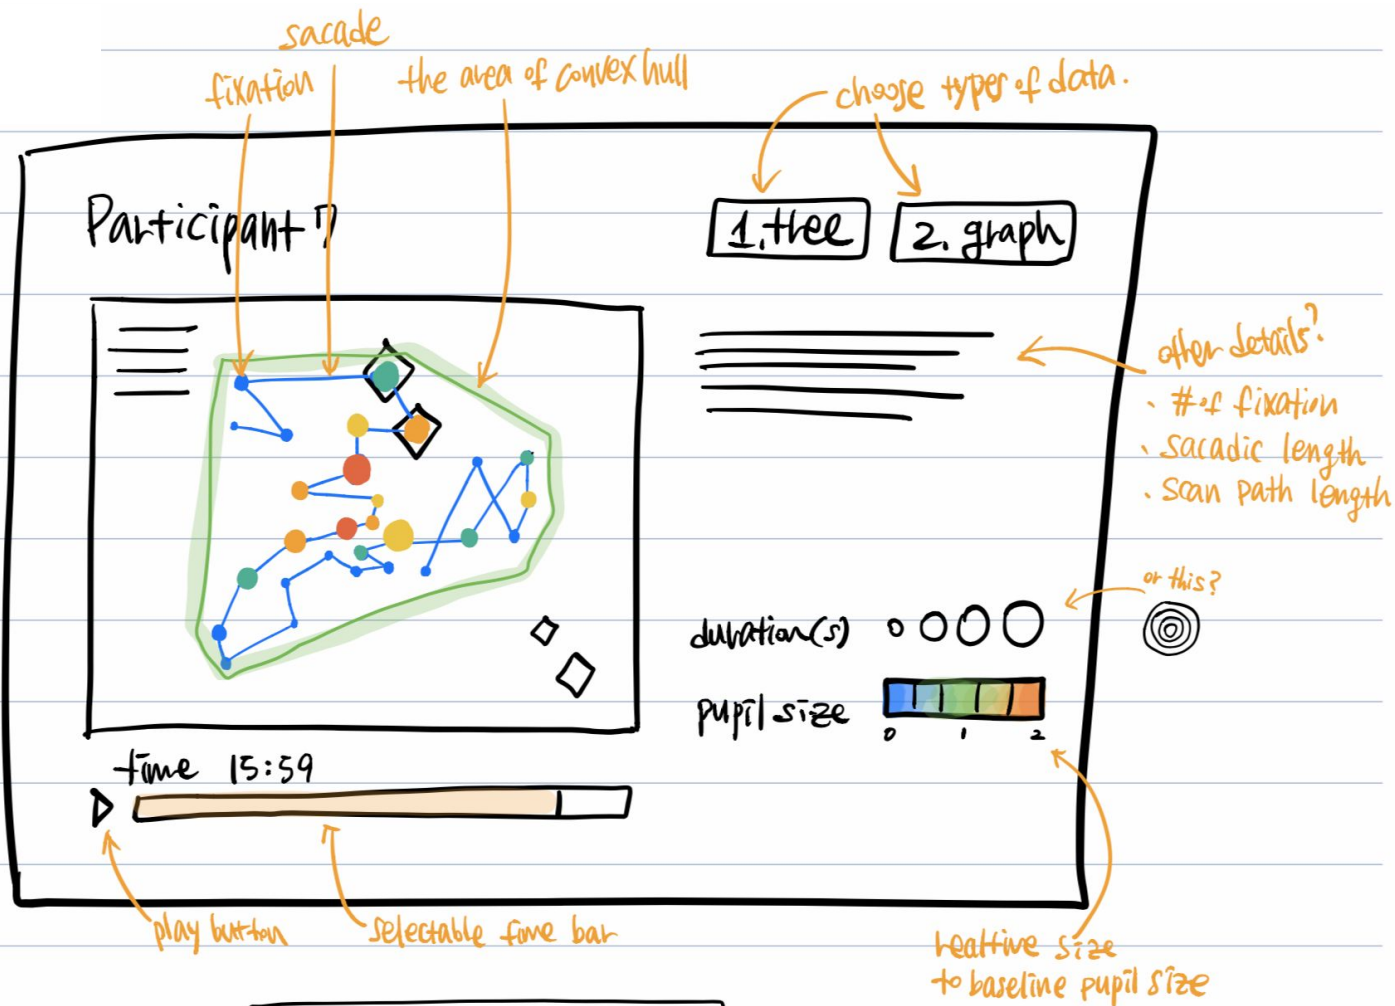 sacade
fixation
the area of convex hull
choose types of data.
Participant 7
1. tree
2. graph
other details?
· # of fixation
· sacadic length
· scan path length
or this?
duration(s)
pupil size
0 1 2
time 15:59
play button
selectable time bar
realtive size
to baseline pupil size